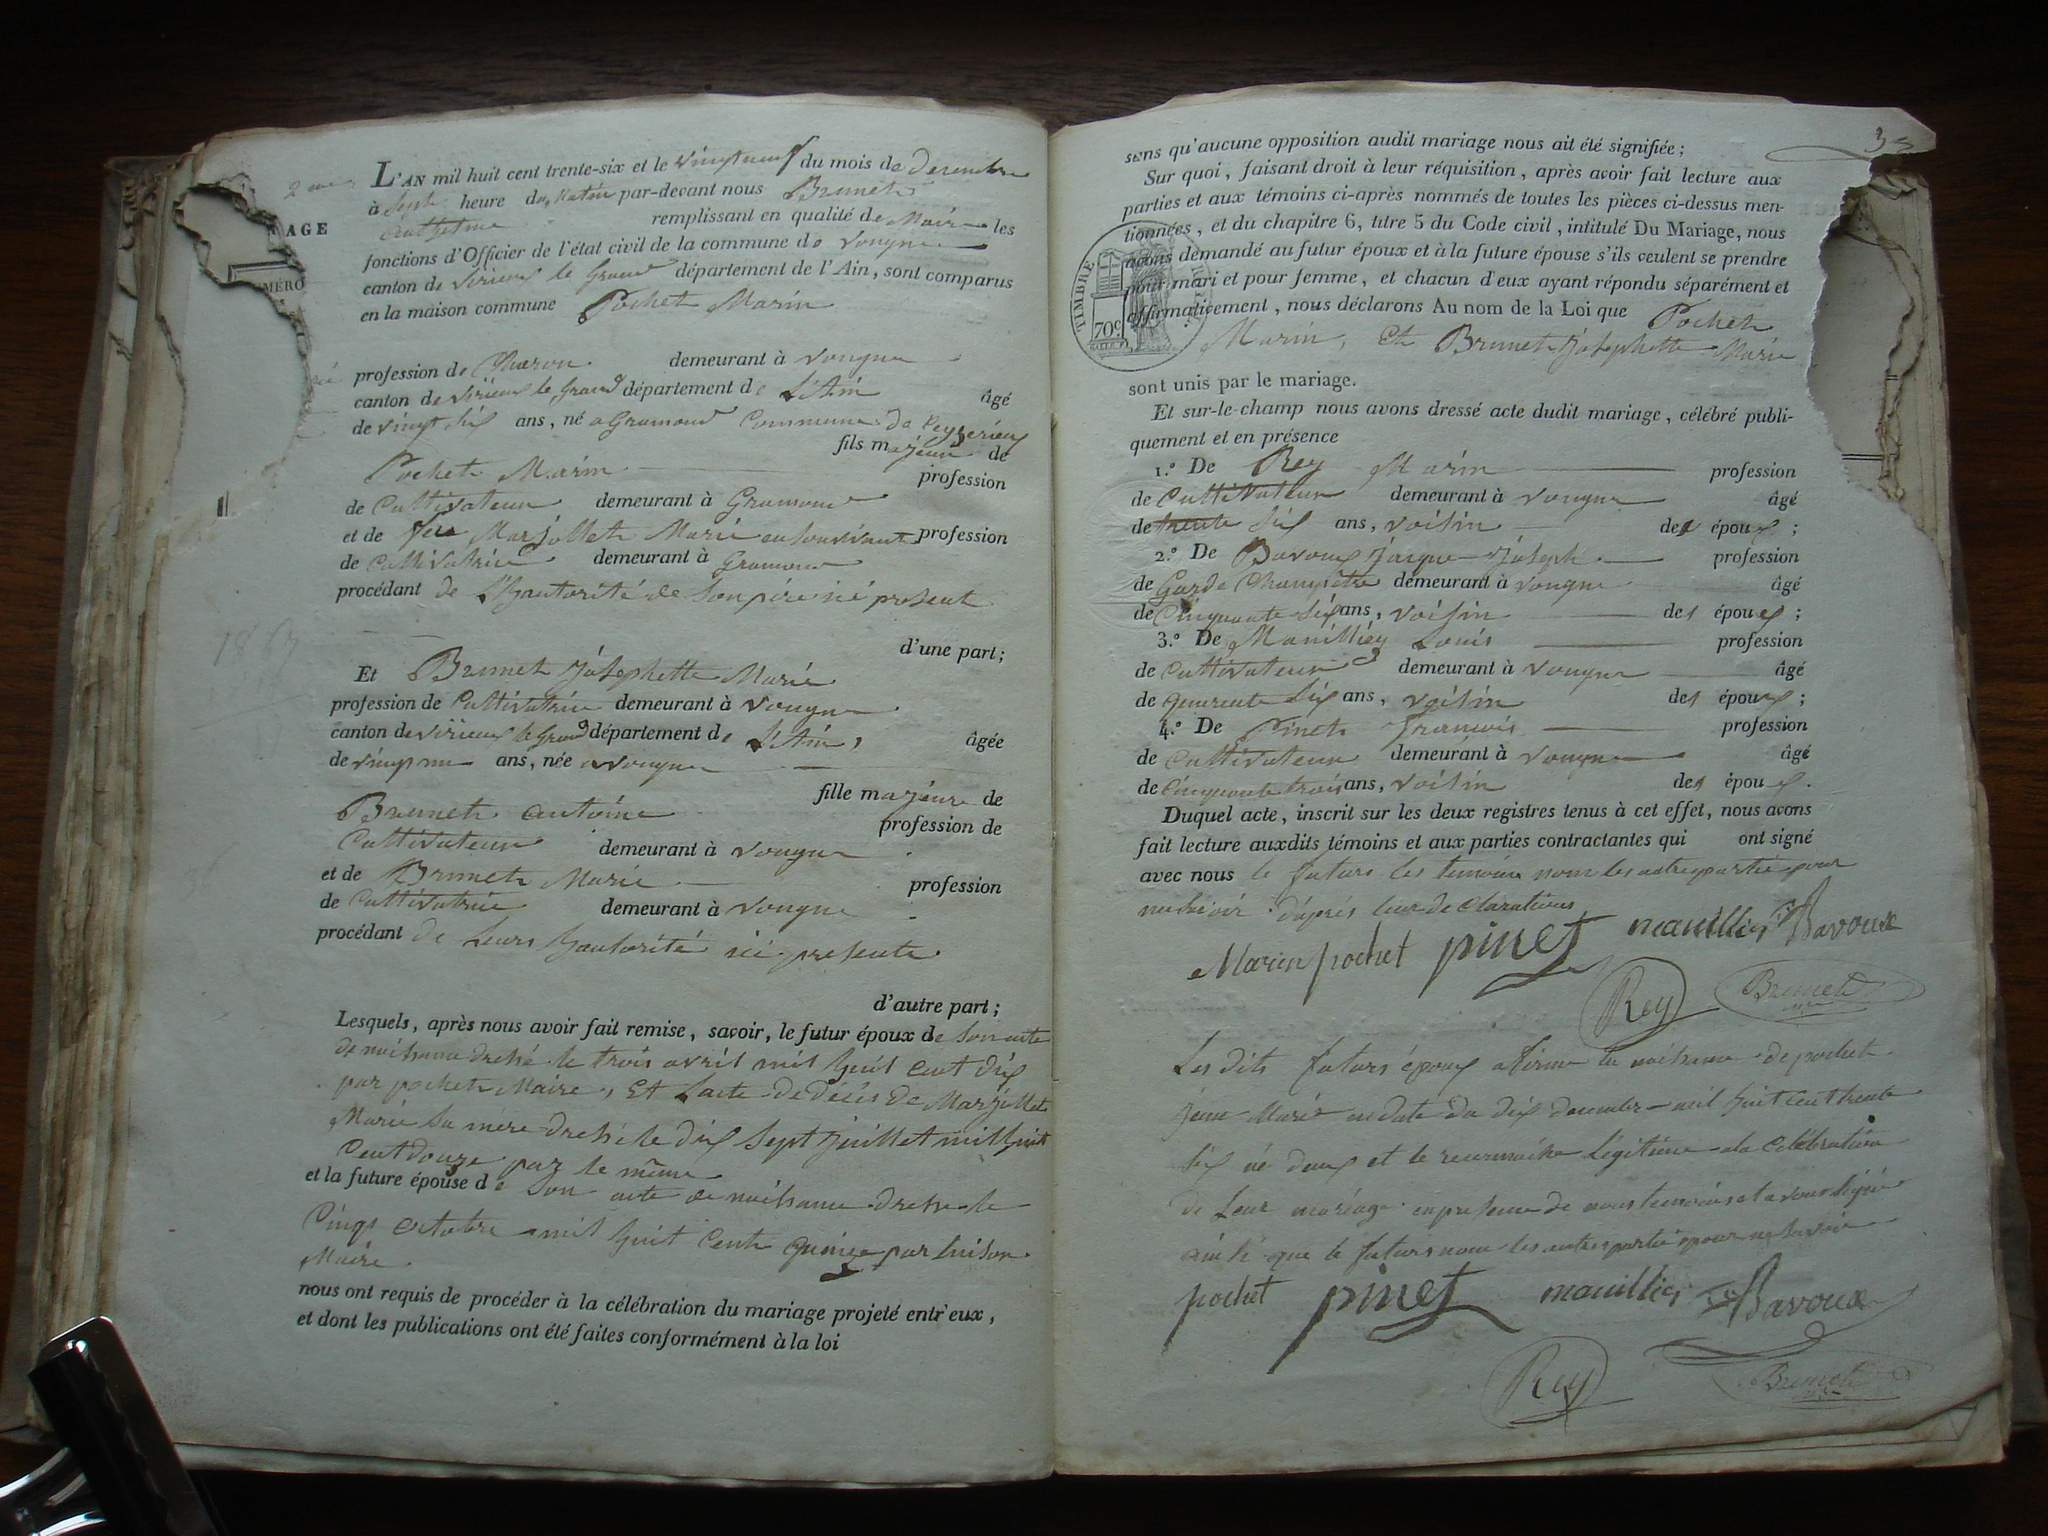 2me
L'AN mil huit cent trente-six et le vingt neuf du mois de Decembre
à Sept heure du Matin par-devant nous Brunet
Anthelme remplissant en qualité de Maire les
AGE
fonctions d'Officier de l'état civil de la commune de Vongne
canton de Virieux le Grand département de l'Ain, sont comparus
MÉRO
en la maison commune Pochet Marin
profession de Charon demeurant à Vongne
canton de Virieux le Grand département de L'Ain âgé
de vingt six ans, né a Gramond Commune de Peyzerieux
fils majeur de
Pochet Marin profession
de Cultivateur demeurant à Gramond
et de feu Marjollet Marie profession
de Cultivatrice demeurant à Gramond
procédant de L'hautorité de Son père ici présent
1863
d'une part;
Et Brunet Josephette Marie
profession de Cultivatrice demeurant à Vongne
canton de Virieux le Grand département de L'Ain, âgée
de vingt un ans, née a Vongne
fille majeure de
Brunet Antoine profession de
Cultivateur demeurant à Vongne
et de Brunet Marie profession
de Cultivatrice demeurant à Vongne
procédant de Leurs hautorité ici présente
d'autre part;
Lesquels, après nous avoir fait remise, savoir, le futur époux de Son acte
de naissance dressé le trois avril mil huit cent dix
par pochet Maire, Et Lacte de décès de Marjollet
Marie Sa mère dressé le dix Sept Juillet mil huit
Cent douze par le même
et la future épouse de Son acte de naissance dressé le
Cinq Octobre mil huit Cent quinze par
Maire
nous ont requis de procéder à la célébration du mariage projeté entr'eux,
et dont les publications ont été faites conformément à la loi
sens qu'aucune opposition audit mariage nous ait été signifiée;
Sur quoi, faisant droit à leur réquisition, après avoir fait lecture aux
parties et aux témoins ci-après nommés de toutes les pièces ci-dessus men-
tionnées, et du chapitre 6, titre 5 du Code civil, intitulé Du Mariage, nous
avons demandé au futur époux et à la future épouse s'ils veulent se prendre
pour mari et pour femme, et chacun d'eux ayant répondu séparément et
affirmativement, nous déclarons Au nom de la Loi que Pochet
TIMBRE
70c
Marin, Et Brunet Josephette Marie
sont unis par le mariage.
Et sur-le-champ nous avons dressé acte dudit mariage, célébré publi-
quement et en présence
1.º De Rey Marin profession
de Cultivateur demeurant à Vongne âgé
de trente Six ans, voisin des époux;
2.º De Bavoux Jacque Joseph profession
de Garde Champêtre demeurant à Vongne âgé
de Cinquante Six ans, voisin des époux;
3.º De Manillier Louis profession
de Cultivateur demeurant à Vongne âgé
de quarente Six ans, voisin des époux;
4.º De Pinet Francois profession
de Cultivateur demeurant à Vongne âgé
de Cinquante trois ans, voisin des époux.
Duquel acte, inscrit sur les deux registres tenus à cet effet, nous avons
fait lecture auxdits témoins et aux parties contractantes qui ont signé
avec nous le futurs les temoins nom les autres partie pour
ne savoir d'après leur declarations
Marin pochet pinet manillier Bavoux
Rey Brunet
Les dits futurs époux la naissance de pochet
Marie en date du dix decembre mil huit Cent trente
Six né deux et le reconnaitre Légitime a la Celébration
de Leur mariage en presence de nous temoins
ainsi que le futurs nom les autres partie pour ne Savoir
pochet pinet manillier Bavoux
Rey Brunet